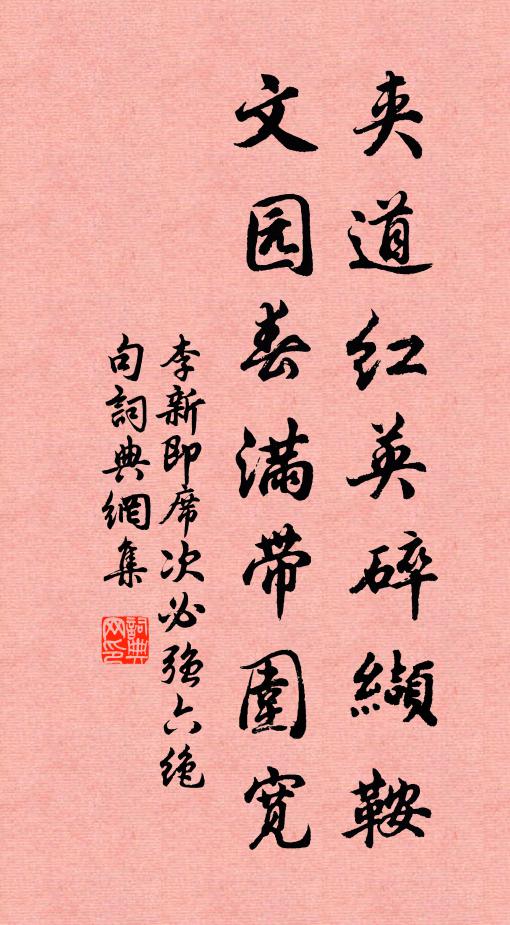 夹道红英碎缬鞍
文园春满带围宽
李新即席次必强六绝
句词典网集
词典网印